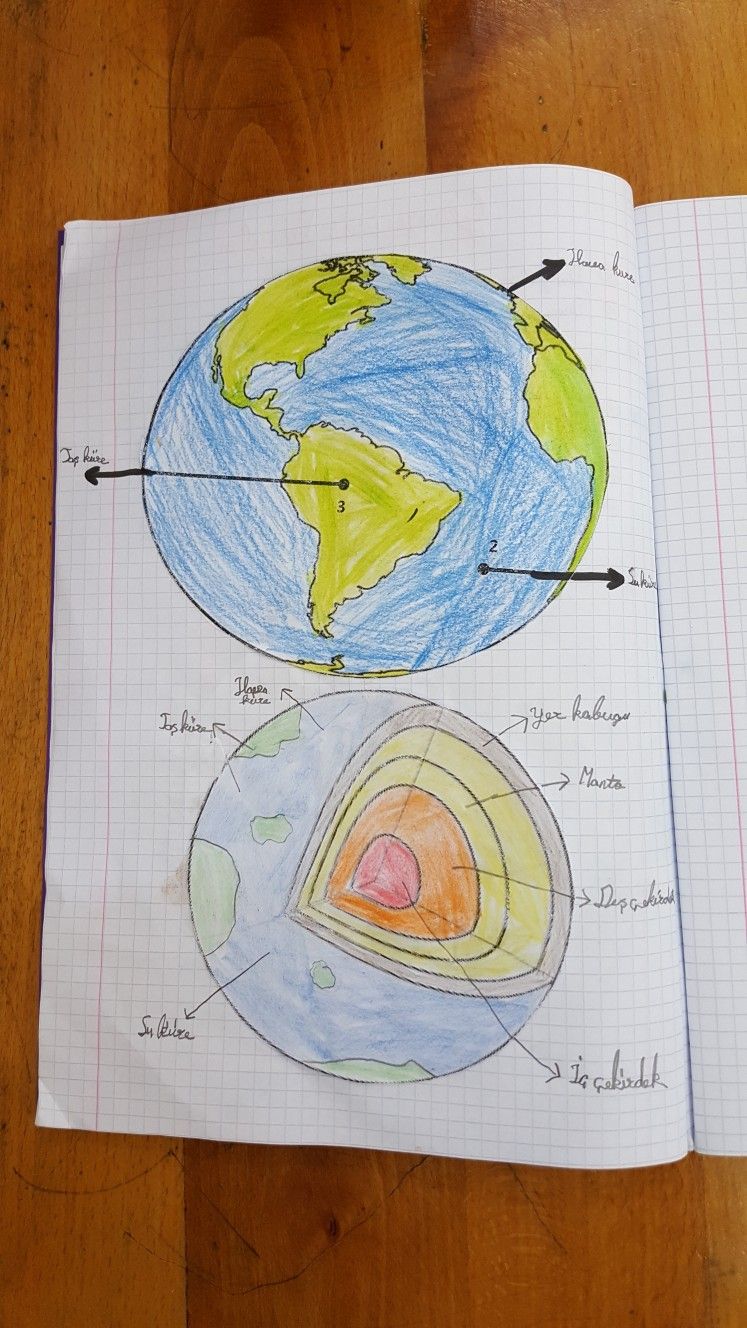 Hava küre
Taş küre
3
2
Su küre
Hava
küre
Taş küre
Yer kabuğu
Manto
Dış çekirdek
Su küre
İç çekirdek